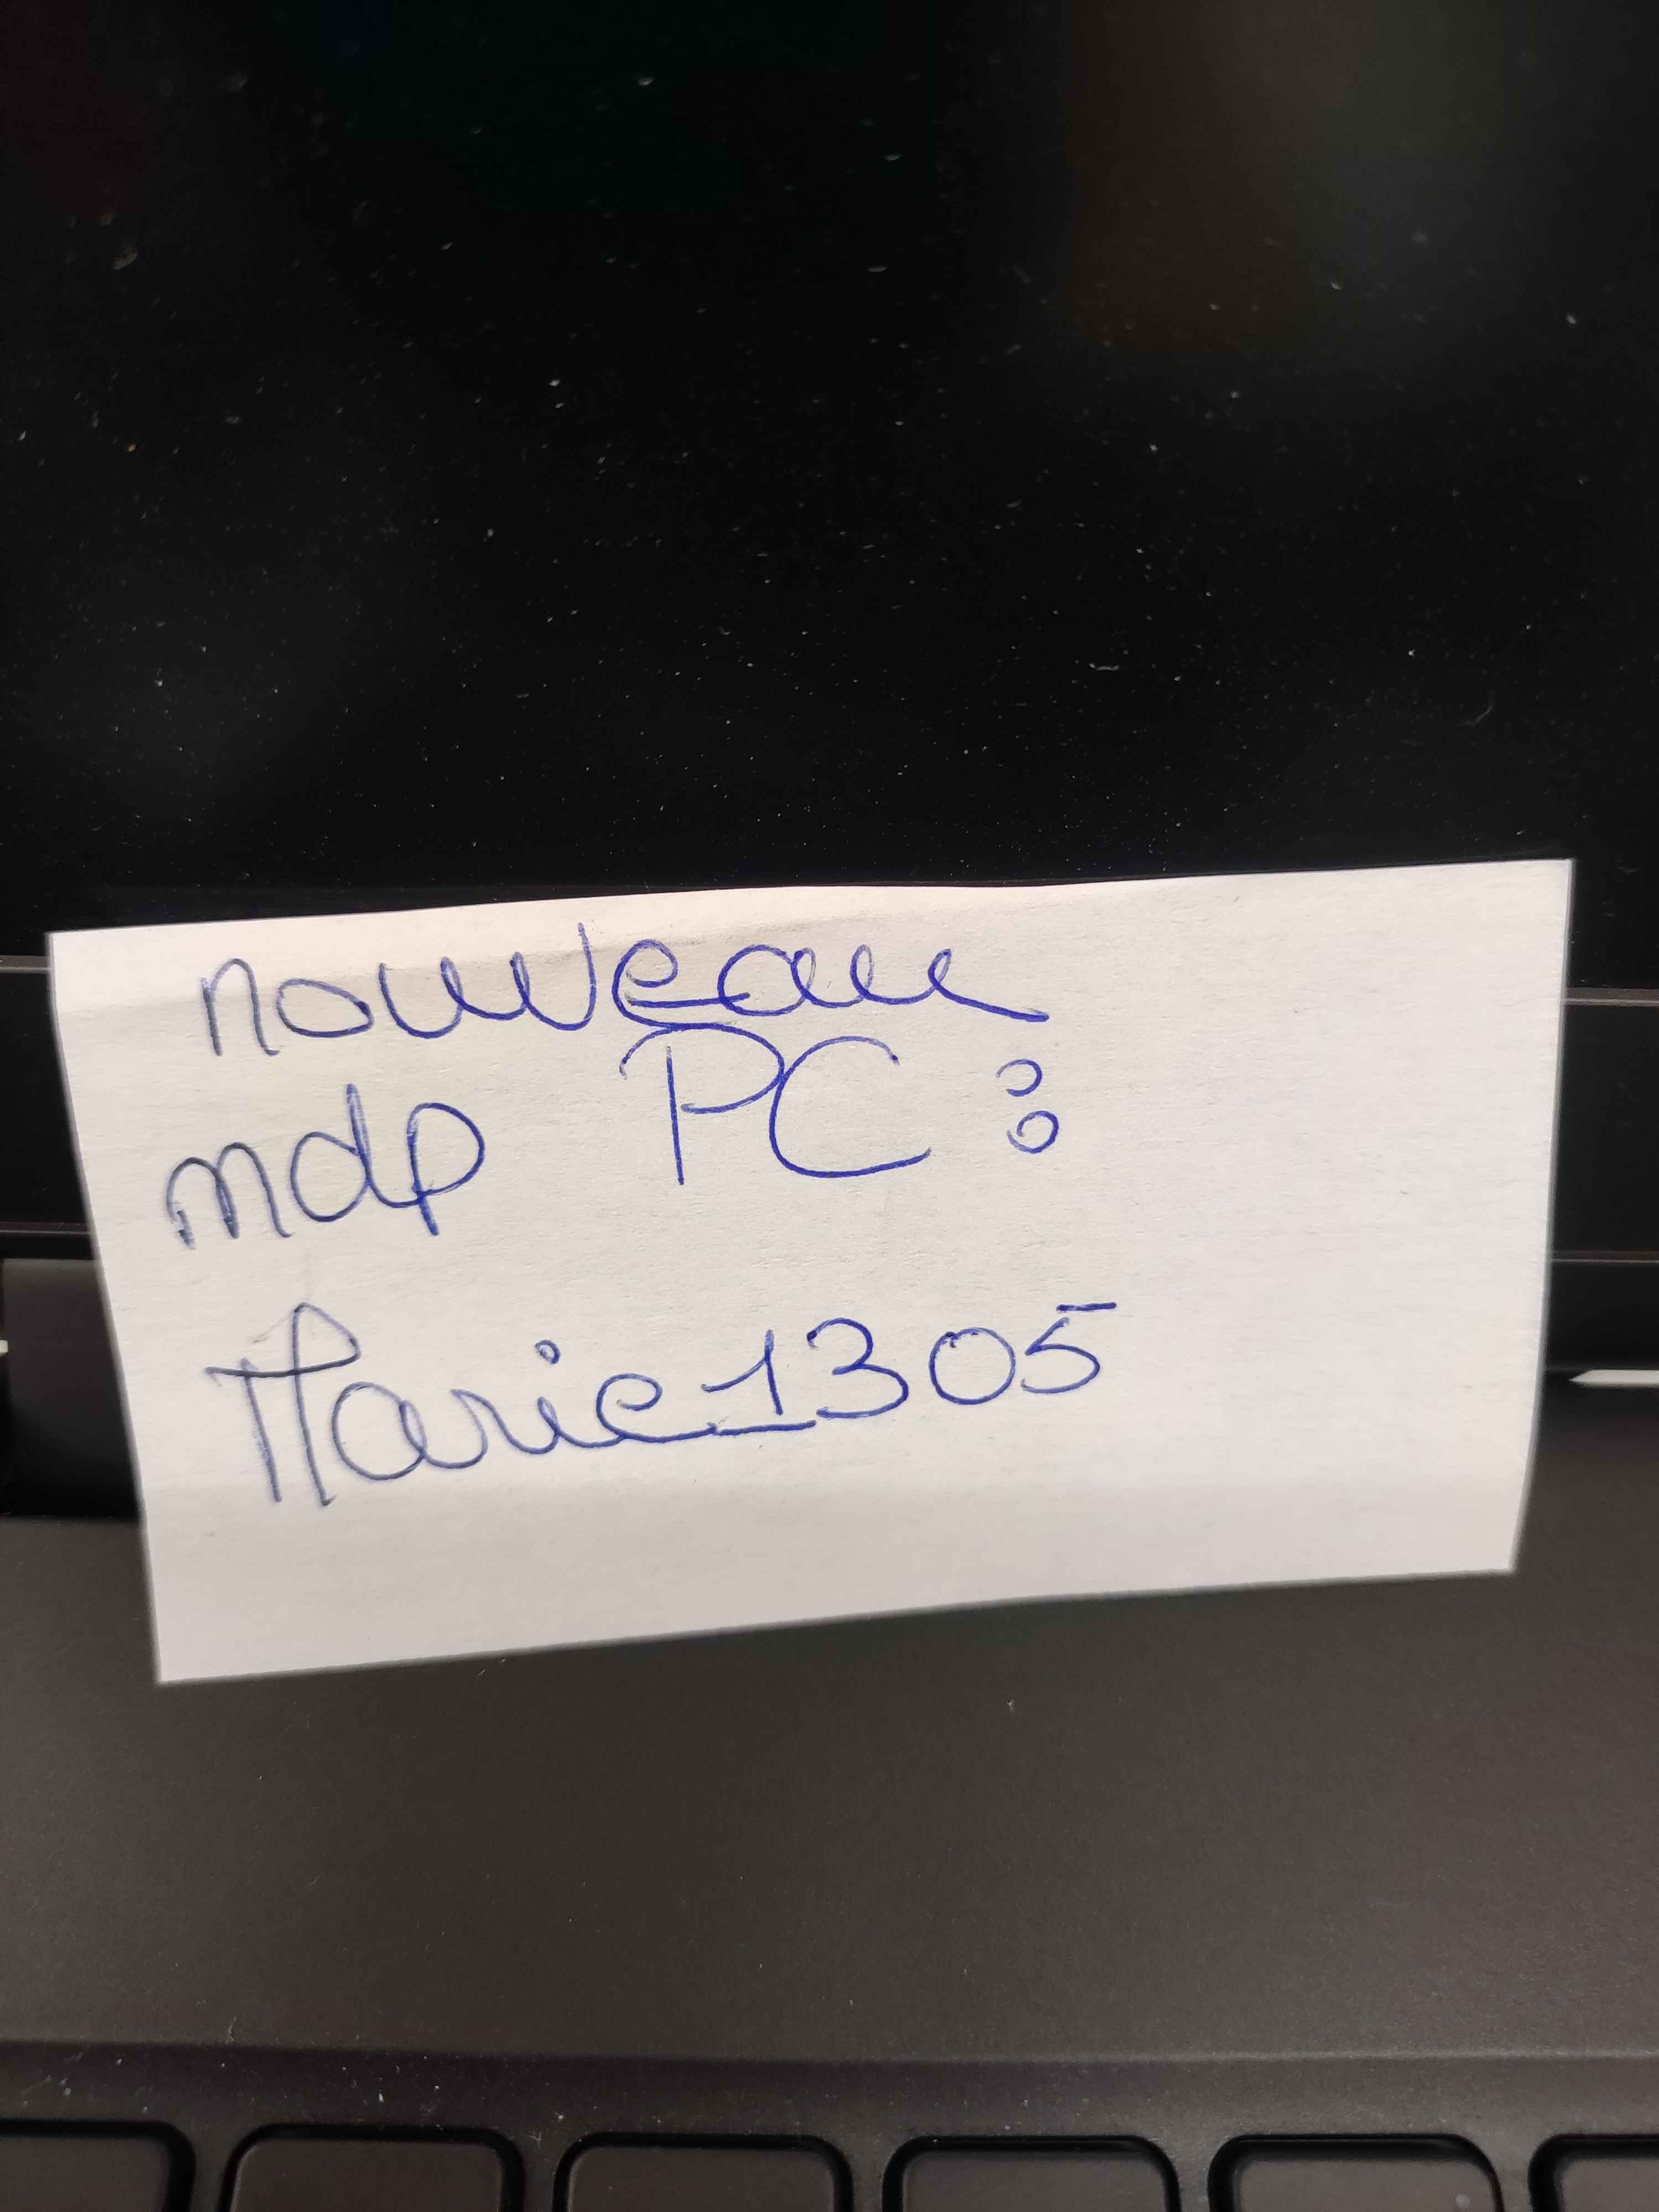 nouveau
mdp PC :
Marie1305